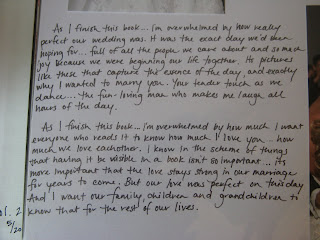 As I finish this book... I'm overwhelmed by how really
perfect our wedding was. It was the exact day we'd been
hoping for... full of all the people we care about and so much
joy because we were beginning our life together. It's pictures
like these that capture the essence of the day, and exactly
why I wanted to marry you. Your tender touch as we
dance... The fun-loving man who makes me laugh all
hours of the day.
As I finish this book... I'm overwhelmed by how much I want
everyone who reads it to know how much I love you... how
much we love eachother. I know in the scheme of things
that having it be visible in a book isn't so important... it's
more important that the love stays strong in our marriage
for years to come. But our love was perfect on this day
And I want our family, children and grandchildren to
know that for the rest of our lives.
2
5/20